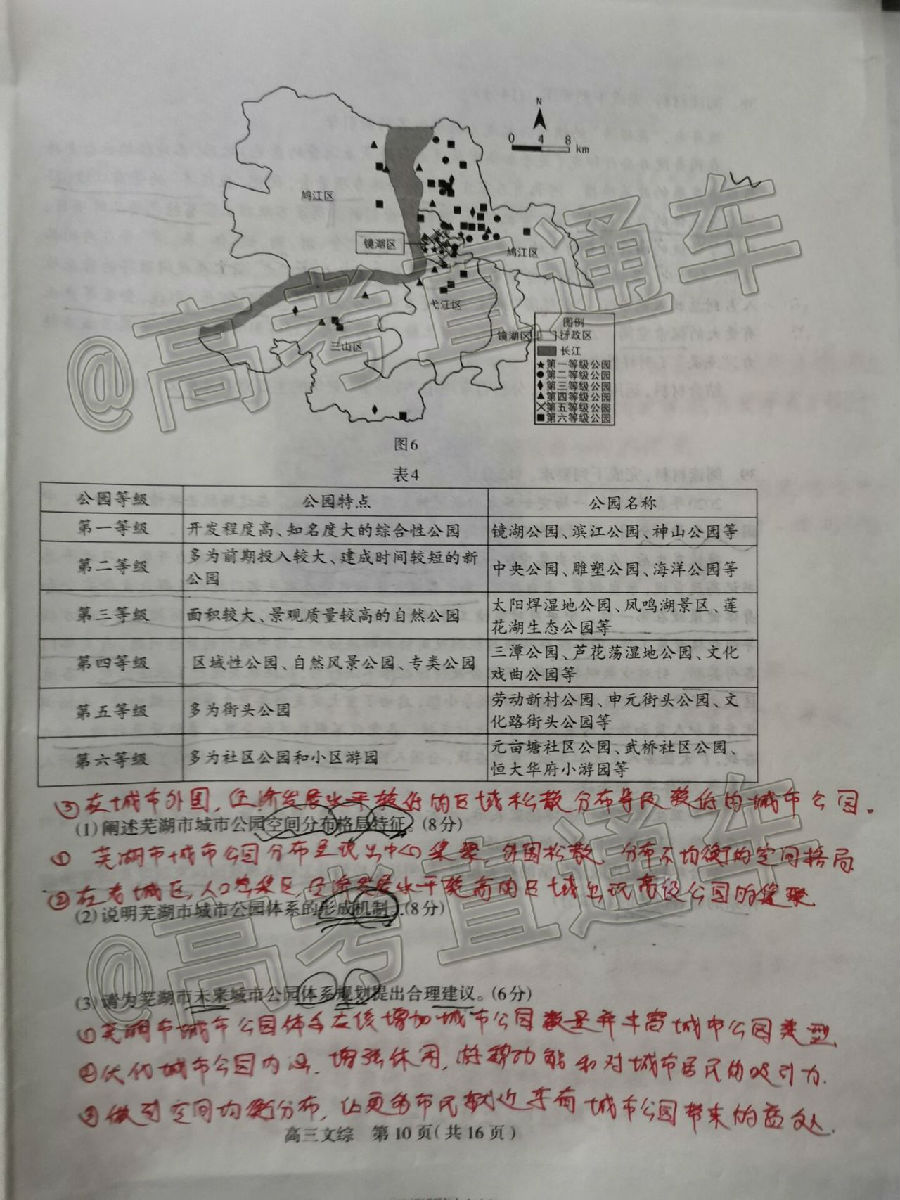 N
0 4 8
km
鸠江区
镜湖区
鸠江区
弋江区
三山区
图例
镜湖区 行政区
长江
第一等级公园
第二等级公园
第三等级公园
第四等级公园
第五等级公园
第六等级公园
图6
表4
公园等级 公园特点 公园名称
第一等级 开发程度高、知名度大的综合性公园 镜湖公园、滨江公园、神山公园等
第二等级 多为前期投入较大、建成时间较短的新
公园 中央公园、雕塑公园、海洋公园等
第三等级 面积较大、景观质量较高的自然公园 太阳垾湿地公园、凤鸣湖景区、莲
花湖生态公园等
第四等级 区域性公园、自然风景公园、专类公园 三潭公园、芦花荡湿地公园、文化
戏曲公园等
第五等级 多为街头公园 劳动新村公园、申元街头公园、文
化路街头公园等
第六等级 多为社区公园和小区游园 元亩塘社区公园、武桥社区公园、
恒大华府小游园等
③在城市外围,经济发展水平较低的区域松散分布等级较低的城市公园。
(1)阐述芜湖市城市公园空间分布格局特征。(8分)
① 芜湖市城市公园分布呈现出中心集聚,外围松散,分布不均衡的空间格局
②在老城区,人口密集区,经济发展水平较高的区域出现高级公园的集聚
(2)说明芜湖市城市公园体系的形成机制。(8分)
(3)请为芜湖市未来城市公园体系规划提出合理建议。(6分)
①芜湖市城市公园体系应该增加城市公园数量并丰富城市公园类型
②优化城市公园内涵,增强休闲,游憩功能和对城市居民的吸引力.
③做到空间均衡分布,让更多市民就近享有城市公园带来的益处.
高三文综 第10页(共16页)
@高考直通车
@高考直通车